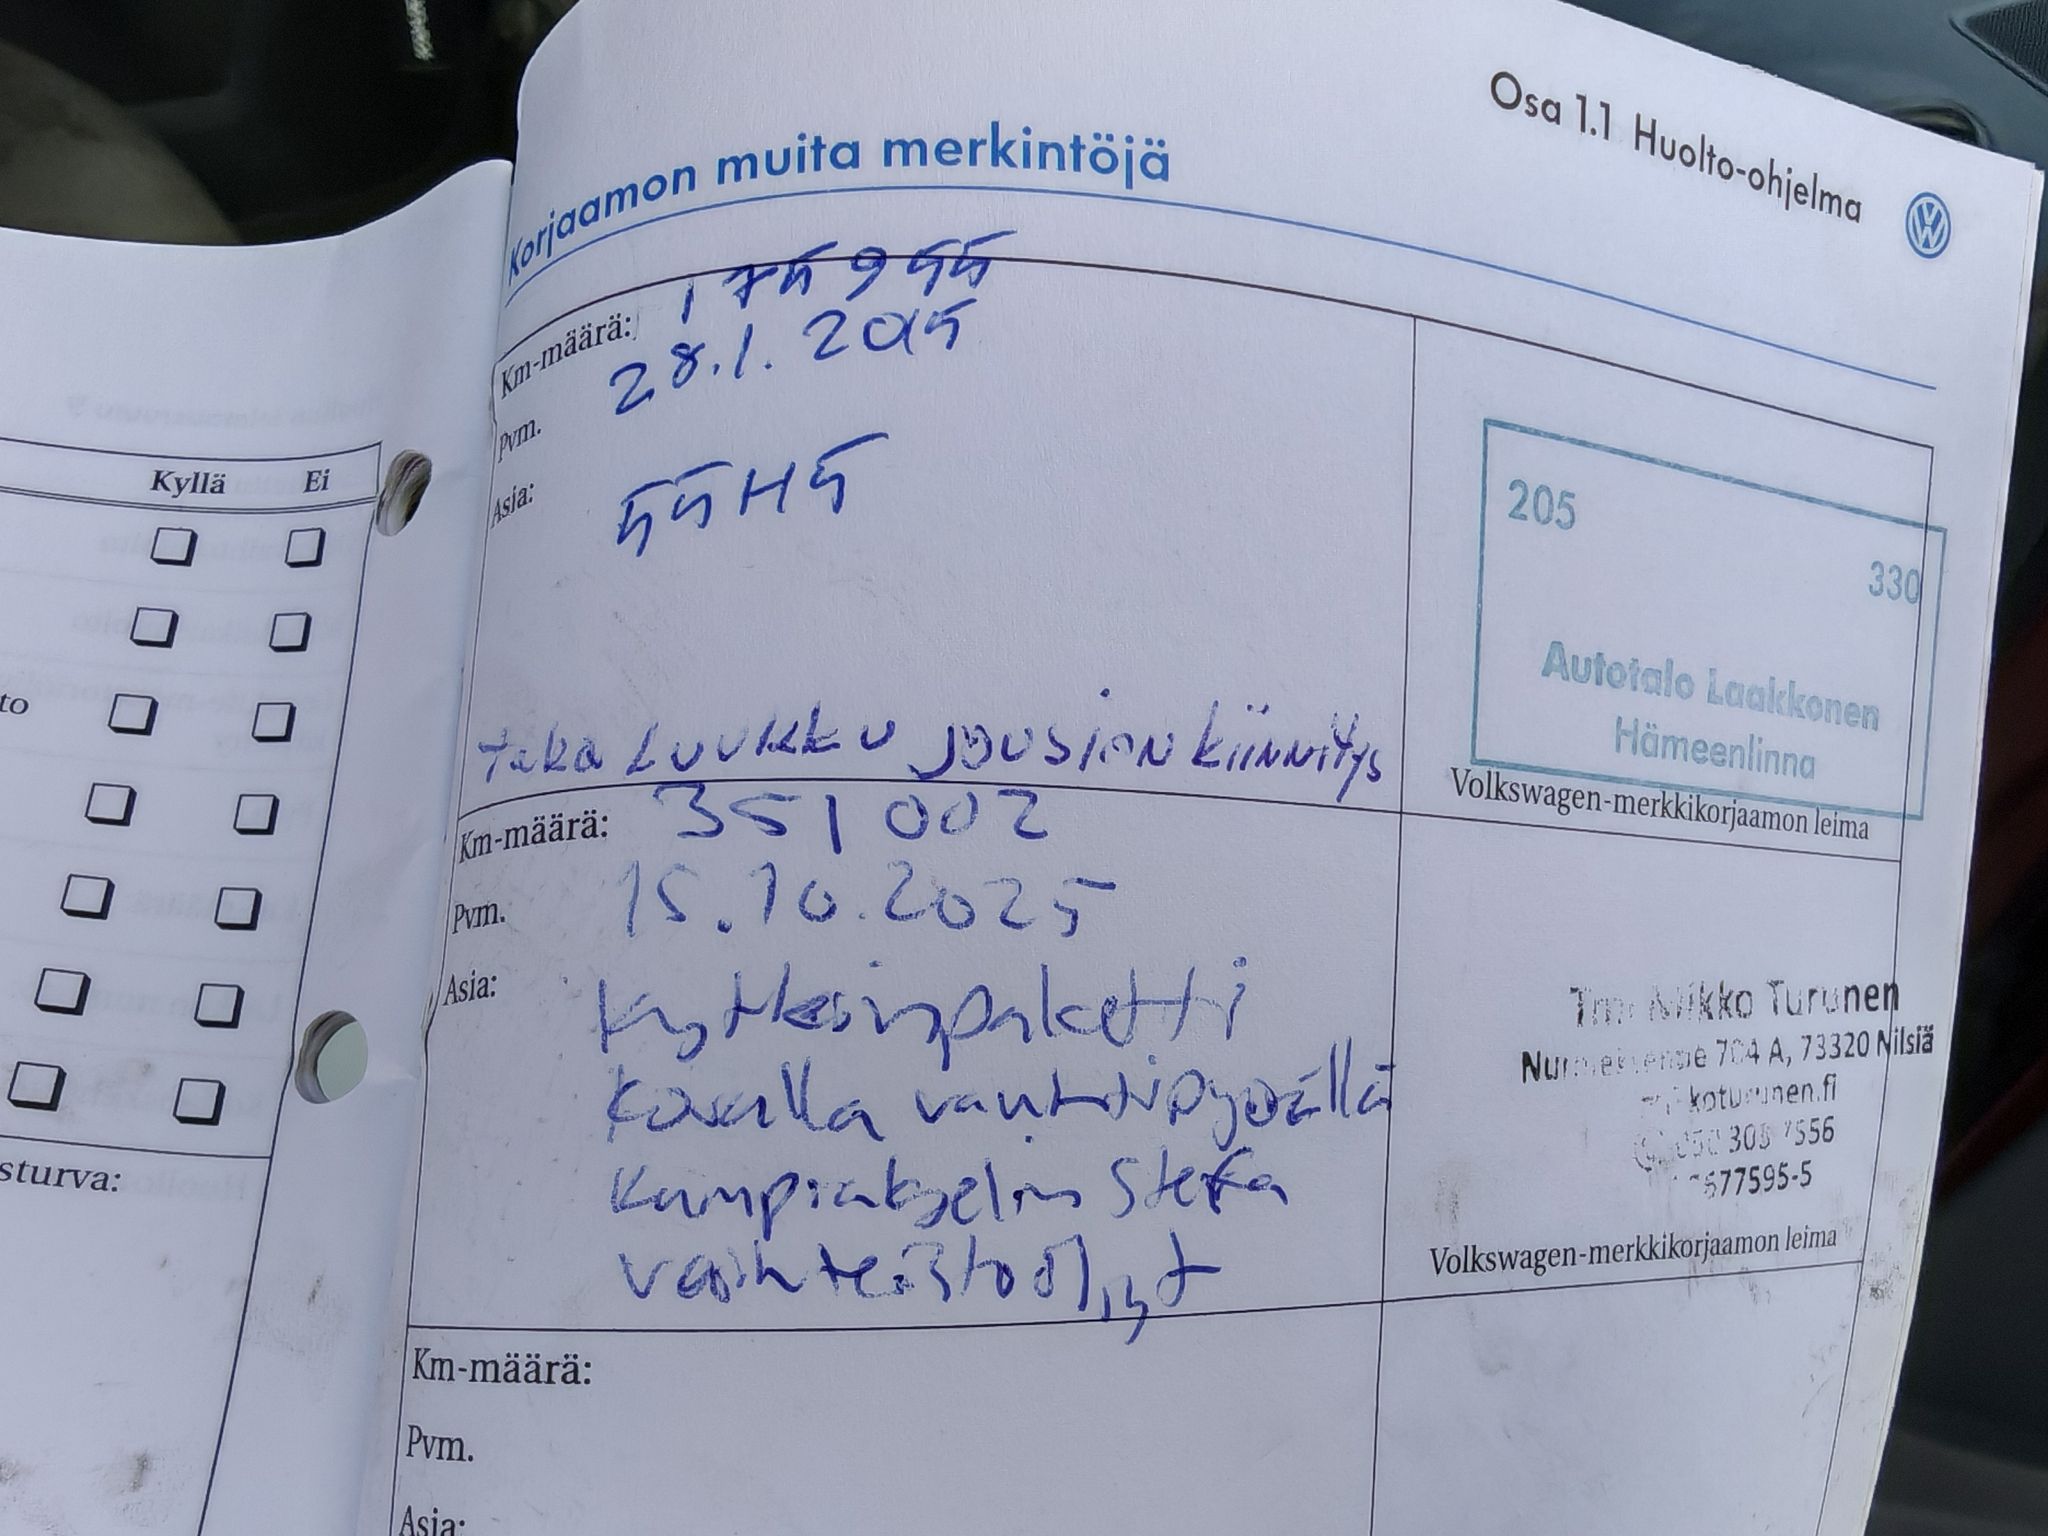 Osa 1.1 Huolto-ohjelma
Korjaamon muita merkintöjä
Km-määrä: 175955
Pvm. 28.1.2015
Asia: 55H5
taka LUUKKU jousien kiinnitys
205
330
Autotalo Laakkonen
Hämeenlinna
Volkswagen-merkkikorjaamon leima
Km-määrä: 351002
Pvm. 15.10.2025
Asia: Kytkinpaketti
kovalla vauhtipyörällä
Kampiakselin stefa
vaihteistoöljyt
Tmi Mikko Turunen
704 A, 73320 Nilsiä
Volkswagen-merkkikorjaamon leima
Km-määrä:
Pvm.
Asia:
Kyllä Ei
to
sturva: